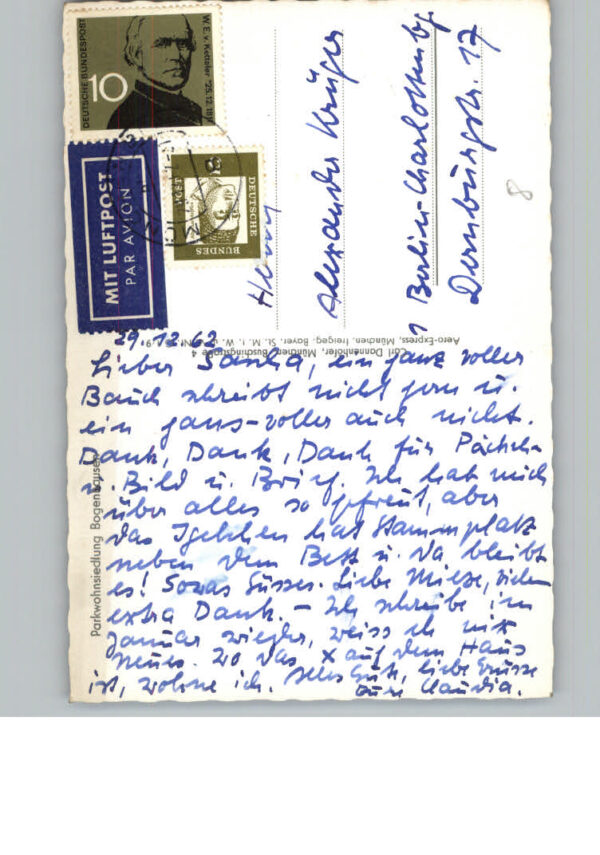 DEUTSCHE BUNDESPOST
10
W.E.v. Ketteler *25.12.18
MIT LUFTPOST
PAR AVION
8
DEUTSCHE
BUNDES
POST
Herrn
Alexander Krüger
1 Berlin-Charlottenbg.
Dernburgstr. 17
8
Carl Dannenhöfer, München, Buschingstraße 4
Aero-Express, München, freigeg. Bayer. St. M. f. W. u.
Parkwohnsiedlung Bogenhausen
29.12.62
Lieber Sascha, ein ganz voller
Bauch schreibt nicht gern u.
ein gans-voller auch nicht.
Dank, Dank, Dank für Päckch.
u. Bild u. Brief. Ich hab mich
über alles so gefreut, aber
das Igelchen hat Stammplatz
neben dem Bett u. da bleibt
es! Sowas Süsses. Liebe Mieze,
extra Dank. – Ich schreibe im
Januar wieder, weiss eh nix
neues. Wo das x auf dem Haus
ist, wohne ich. Alles Gute, liebe Grüsse
Eure Claudia.